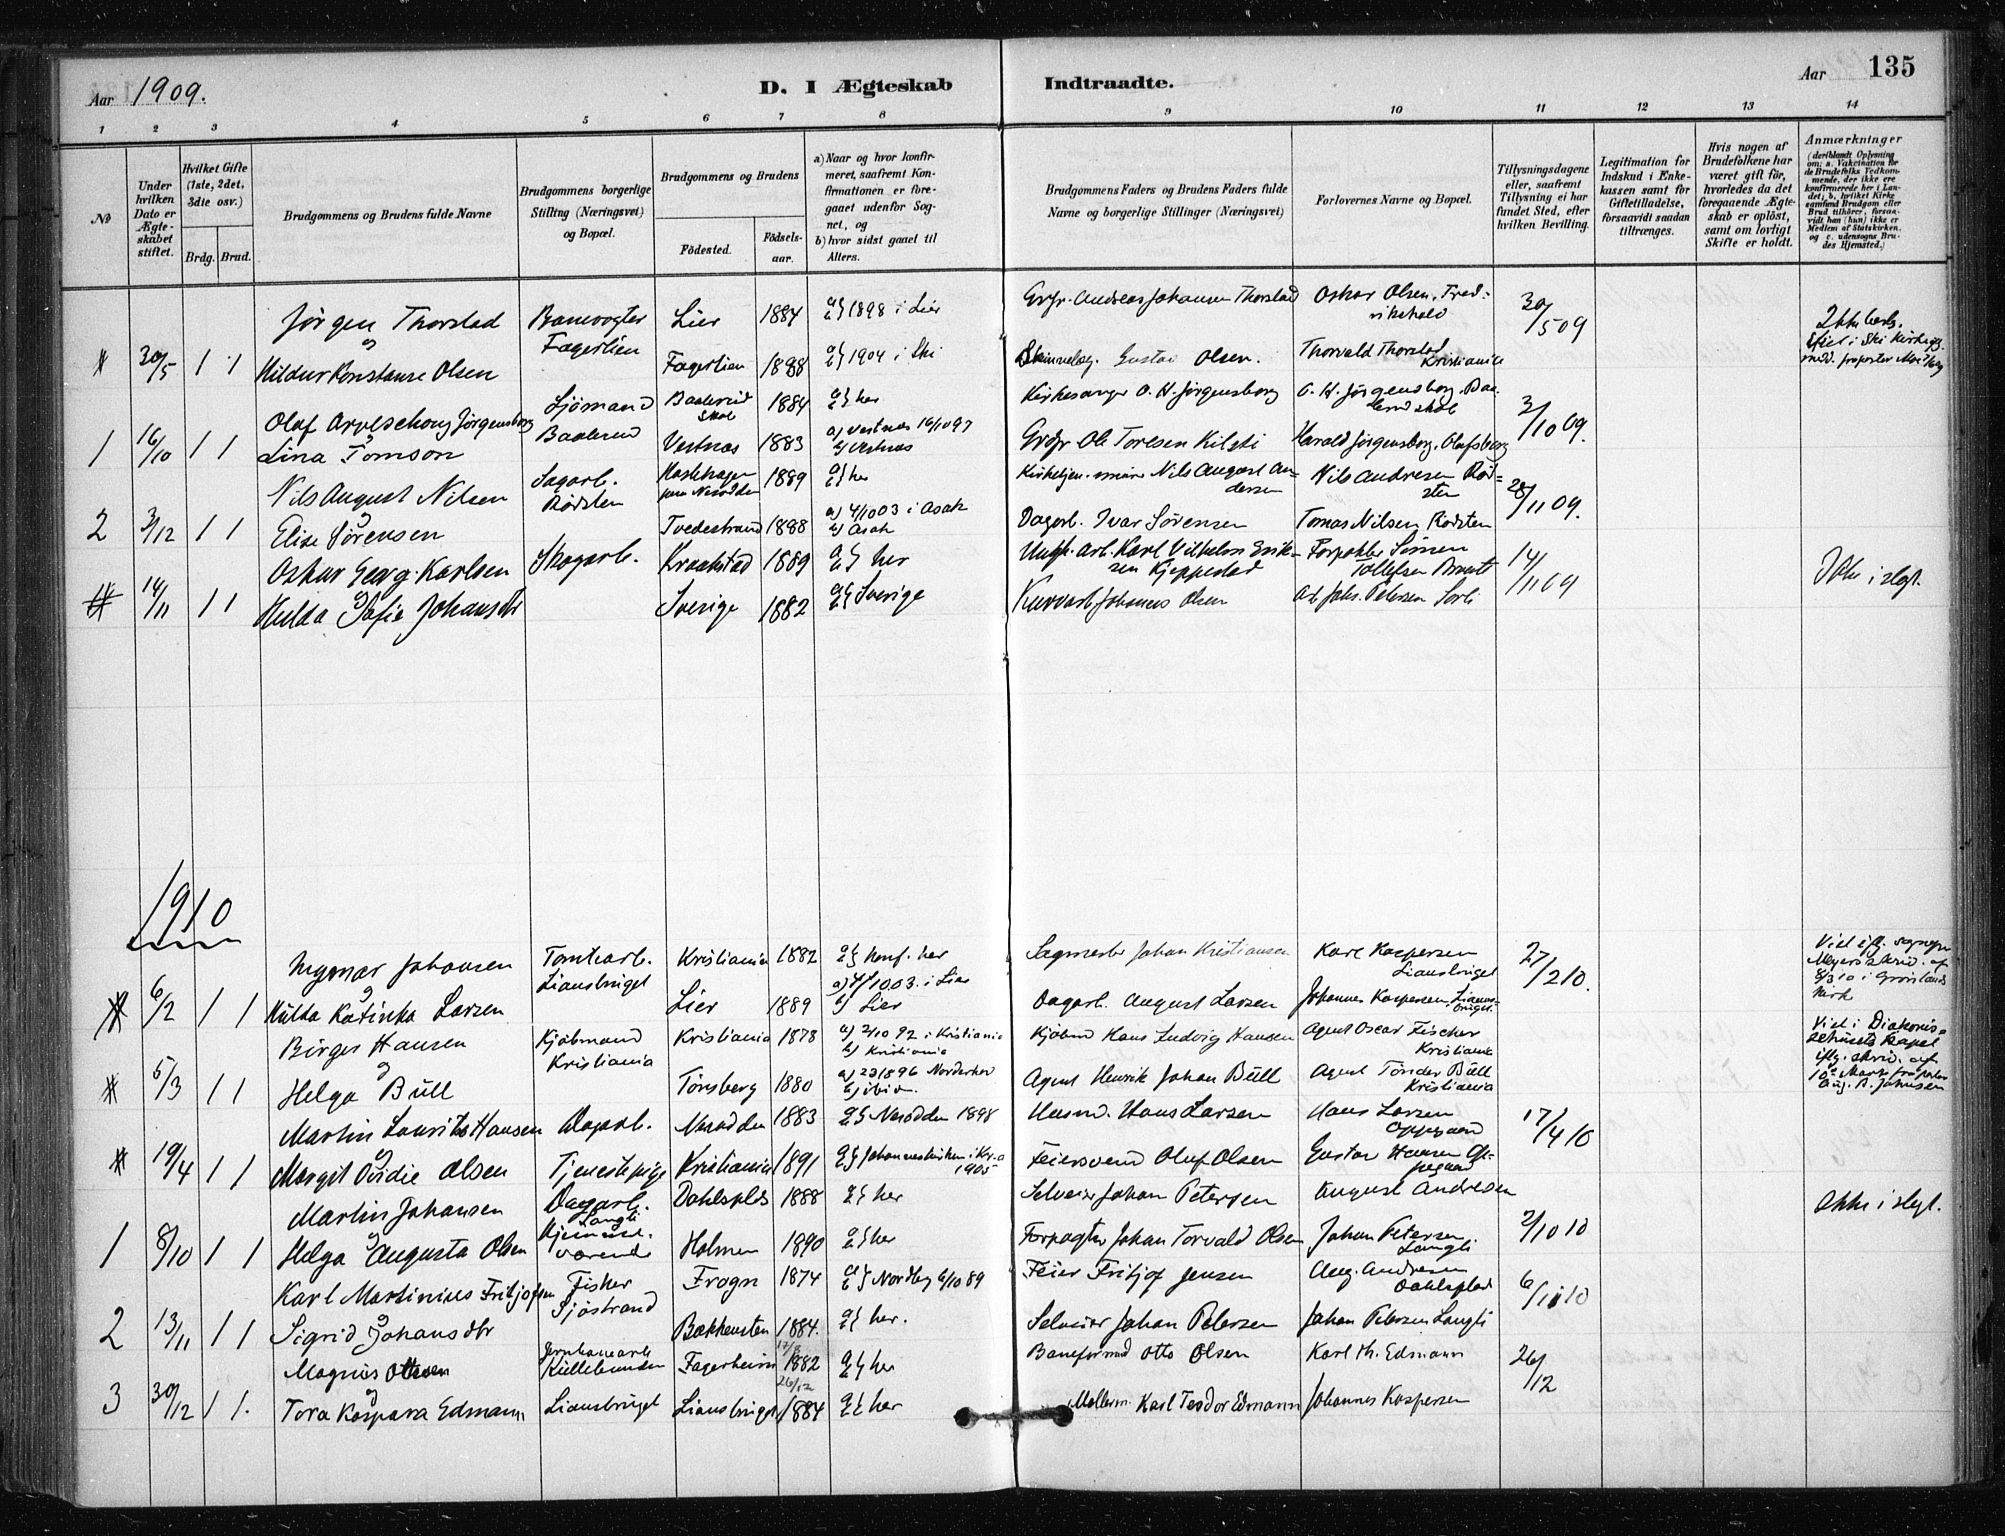 Aar 1909.
D. I Ægteskab Indtraadte.
Aar 135
1 2 3 4 5 6 7 8 9 10 11 12 13 14
No
Under hvilken Dato er Ægteskabet stiftet.
Hvilket Gifte (1ste, 2det, 3die osv.)
Brdg. Brud.
Brudgommens og Brudens fulde Navne
Brudgommens borgerlige Stilling (Næringsvei) og Bopæl.
Brudgommens og Brudens
Fødested. Fødselsaar.
a) Naar og hvor konfirmeret, saafremt Konfirmationen er foregaaet udenfor Sognet, og
b) hvor sidst gaaet til Alters.
Brudgommens Faders og Brudens Faders fulde Navne og borgerlige Stillinger (Næringsvei)
Forlovernes Navne og Bopæl.
Tillysningsdagene eller, saafremt Tillysning ei har fundet Sted, efter hvilken Bevilling.
Legitimation for Indskud i Enkekassen samt for Giftetilladelse, forsaavidt saadan tiltrænges.
Hvis nogen af Brudefolkene har været gift før, hvorledes da det foregaaende Ægteskab er opløst, samt om lovligt Skifte er holdt.
Anmærkninger
(deriblandt Oplysning om: a. Vakcination for de Brudefolks Vedkommende, der ikke ere konfirmerede her i Landet; b. hvilket Kirkesamfund Brudgom eller Brud tilhører, forsaavidt han (hun) ikke er Medlem af Statskirken, og c. udensogns Brudes Hjemsted.)
Jørgen Thorstad Banevogter Lier 1884 a} b} 1898 i Lier Grbr. Andreas Johansen Thorstad Oskar Olsen, Fredrikshald 30/5 09
og Fagerlien
30/5 1 1 Hildur Konstanse Olsen Fagerlien 1888 a} b} 1904 i Ski Gustav Olsen. Thorvald Thorstad Kristiania
Ikke
Viet i Ski Kirke
Olaf Jørgensborg Sjømand Baalerud Skole 1884 a} b} her Kirkesanger O. H. Jørgensborg O. H. Jørgensborg, Baalerud skole 3/10 09.
1 16/10 1 1 Lina Tomson Baalerud Vestnes 1883 a) Vestnes 10/10 97 b) Vestnes Grbr Ole Toresen Kilsti Harald Jørgensborg, Olafsborg
Nils August Nilsen Sagarb. Rødsten Nesodden 1889 a} b} her Nils August Andersen Nils Andresen Rødsten 28/11 09.
2 3/12 1 1 Elise Sørensen Tvedestrand 1888 a) 4/10 03 i Asak b) Asak Dagarb. Ivar Sørensen Tomas Nilsen Rødsten
Oskar Georg Karlsen Skogarb. Kraakstad 1889 a} b} her Karl Vilhelm Eriksen Kjeppestad Forpakter Simen Tollefsen 14/11 09 Ikke i slegt.
14/11 1 1 Hulda Sofie Johansdtr Sverige 1882 a} b} Sverige Johannes Olsen Arb. Johs. Petersen
1910
Ingmar Johansen Tomtearb. Kristiania 1882 a} b} konf. her Sagmester Johan Kristiansen Karl Kaspersen Liansbruget 27/2 10.
og Liansbruget
6/2 1 1 Hulda Katinka Larsen Lier 1889 a) 4/10 03. i Lier b) Lier Dagarb. August Larsen Johannes Kaspersen, Liansbruget
Viet iflg. sogneprest Meyers skriv. af 8/3 10 i Grønlands kirke
Birger Hansen Kjøbmand Kristiania Kristiania 1878 a) 2/10 92 i Kristiania b) Kristiania Kjøbmd Hans Ludvig Hansen Agent Oscar Fischer Kristiania
5/3 1 1 Helga Bull Tønsberg 1880 a) 23 1896 Norderhov b) ibid. Agent Henrik Johan Bull Agent Tønder Bull Kristiania
Viet i Diakonissehusets kapel iflg. skriv. af
Martin Laurits Hansen Dagarb. Nesodden 1883 a} b} Nesodden 1898 Husmd. Hans Larsen Hans Larsen Oppegaard 17/4 10
19/4 1 1 Margit Ovidie Olsen Tjenestepige Kristiania 1891 a} b} Johanneskirken i Kr.a 1905 Feiersvend Oluf Olsen Gustav Hansen Oppegaard
Martin Johansen Dagarb. Langli Dahlsplds 1888 a} b} her Selveier Johan Petersen August Andresen 2/10 10 Ikke i slegt.
1 8/10 1 1 Helga Augusta Olsen Hjemmeværende Holmen 1890 a} b} her Forpagter Johan Torvald Olsen Johan Petersen, Langli
Karl Martinius Fritjofsen Fisker Sjøstrand Frogn 1874 a} b} Nordby 6/10 89 Feier Fritjof Jensen Aug. Andresen Dahlsplad 6/11 10
2 13/11 1 1 Sigrid Johansdtr Bækkensten 1884. a} b} her. Selveier Johan Petersen Johan Petersen Langli
Magnus Ottesen Jernbanearb Kullebunden Fagerheim 17/8 1882 a} b} her Baneformd Otto Olsen Karl Th. Edmann 26/12
3 30/12 1 1. Tora Kaspara Edmann Liansbruget Liansbruget 26/12 1884 a} b} her Møllerm. Karl Teodor Edmann Johannes Kaspersen